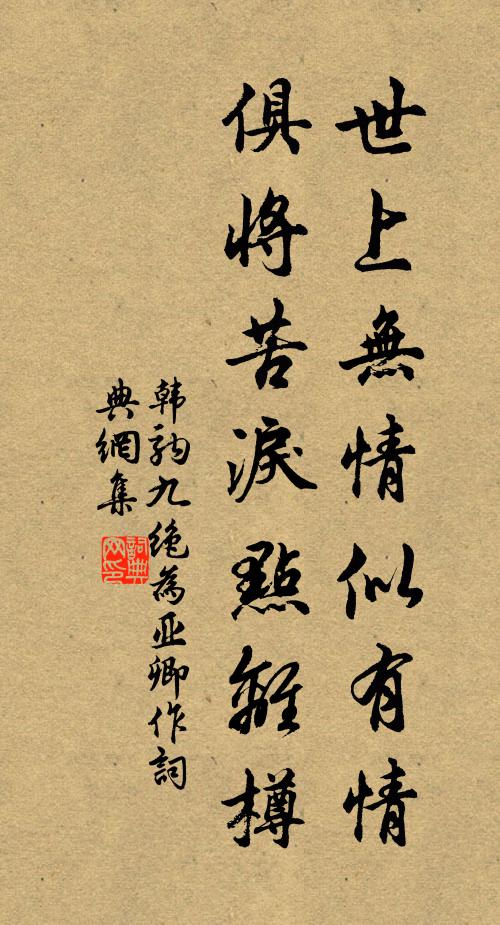 世上無情似有情
俱將苦淚點離樽
韩驹九绝為亚卿作詞
典網集
詞典
网印